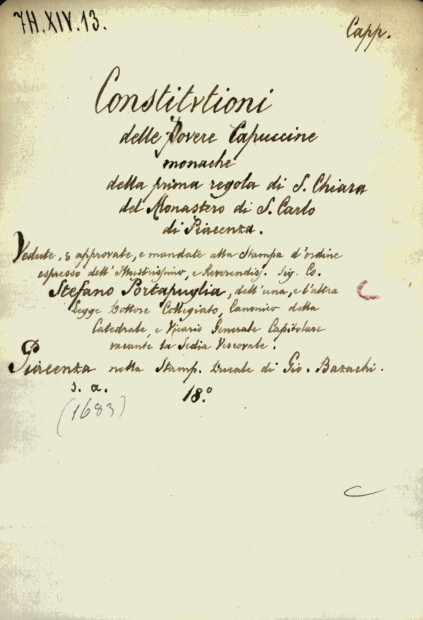 7H.XIV.13.
Capp.
Constitvtioni
delle Povere Capuccine
monache
della prima regola di S. Chiara
del Monastero di S. Carlo
di Piacenza.
Vedute, & approvate, e mandate alla Stampa d'ordine
espresso dell'Illustrissimo, e Reverendiss. Sig. Co.
Stefano Portapuglia, dell'una, e l'altra
Legge Dottore Collegiato, Canonico della
Catedrale, e Vicario Generale Capitolare
vacante la Sedia Vescovale.
Piacenza nella Stamp. Ducale di Gio. Bazachi.
s. a. 18.º
(1683)